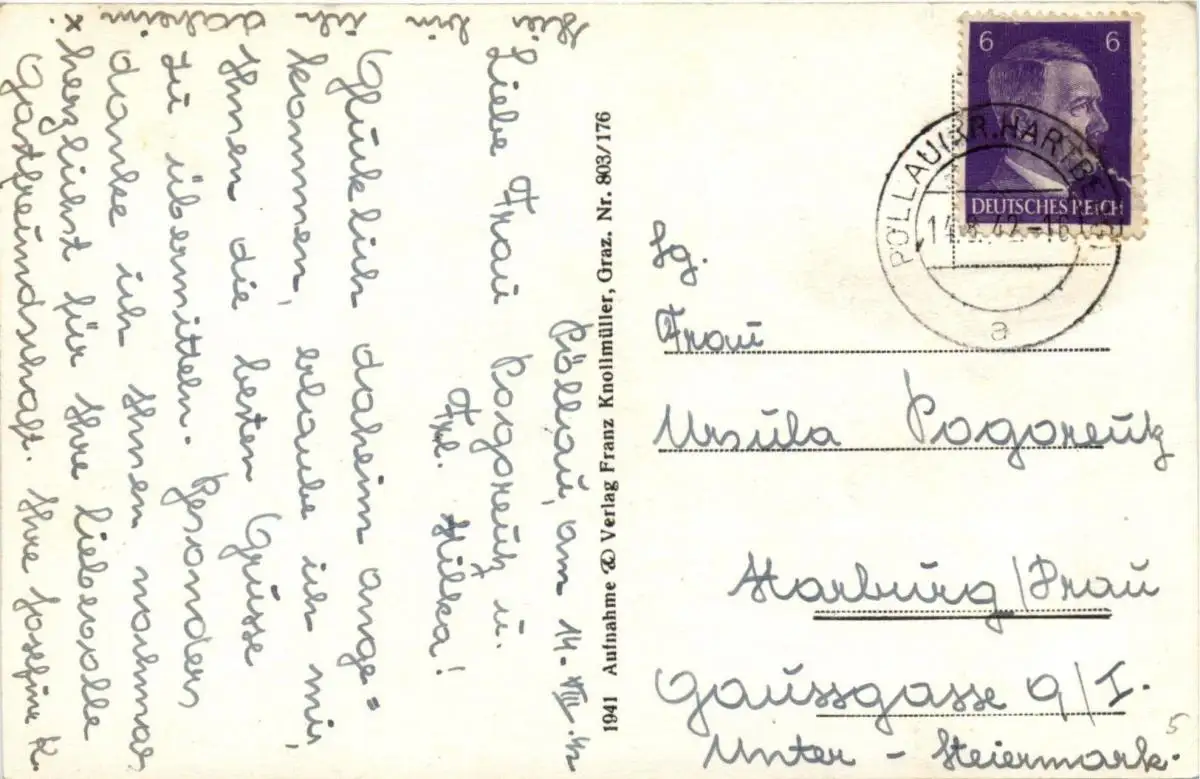 Pöllau, am 14. VIII. 42
Liebe Frau Pogoreutz u.
Frl. Milka!
Glücklich daheim ange=
kommen, erlaube ich mir,
Ihnen die besten Grüsse
zu übermitteln. Besonders
danke ich Ihnen nochmals
herzlichst für Ihre liebevolle
Gastfreundschaft. Ihre Josefine K.
x
Hier bin ich daheim
1941 Aufnahme & Verlag Franz Knollmüller, Graz. Nr. 803/176
6 6
DEUTSCHES REICH
PÖLLAU (KR. HARTBERG)
14.8.42-16
a
Frau
Ursula Pogoreutz
Marburg/Drau
Gaussgasse 9/I.
Unter-Steiermark.
5